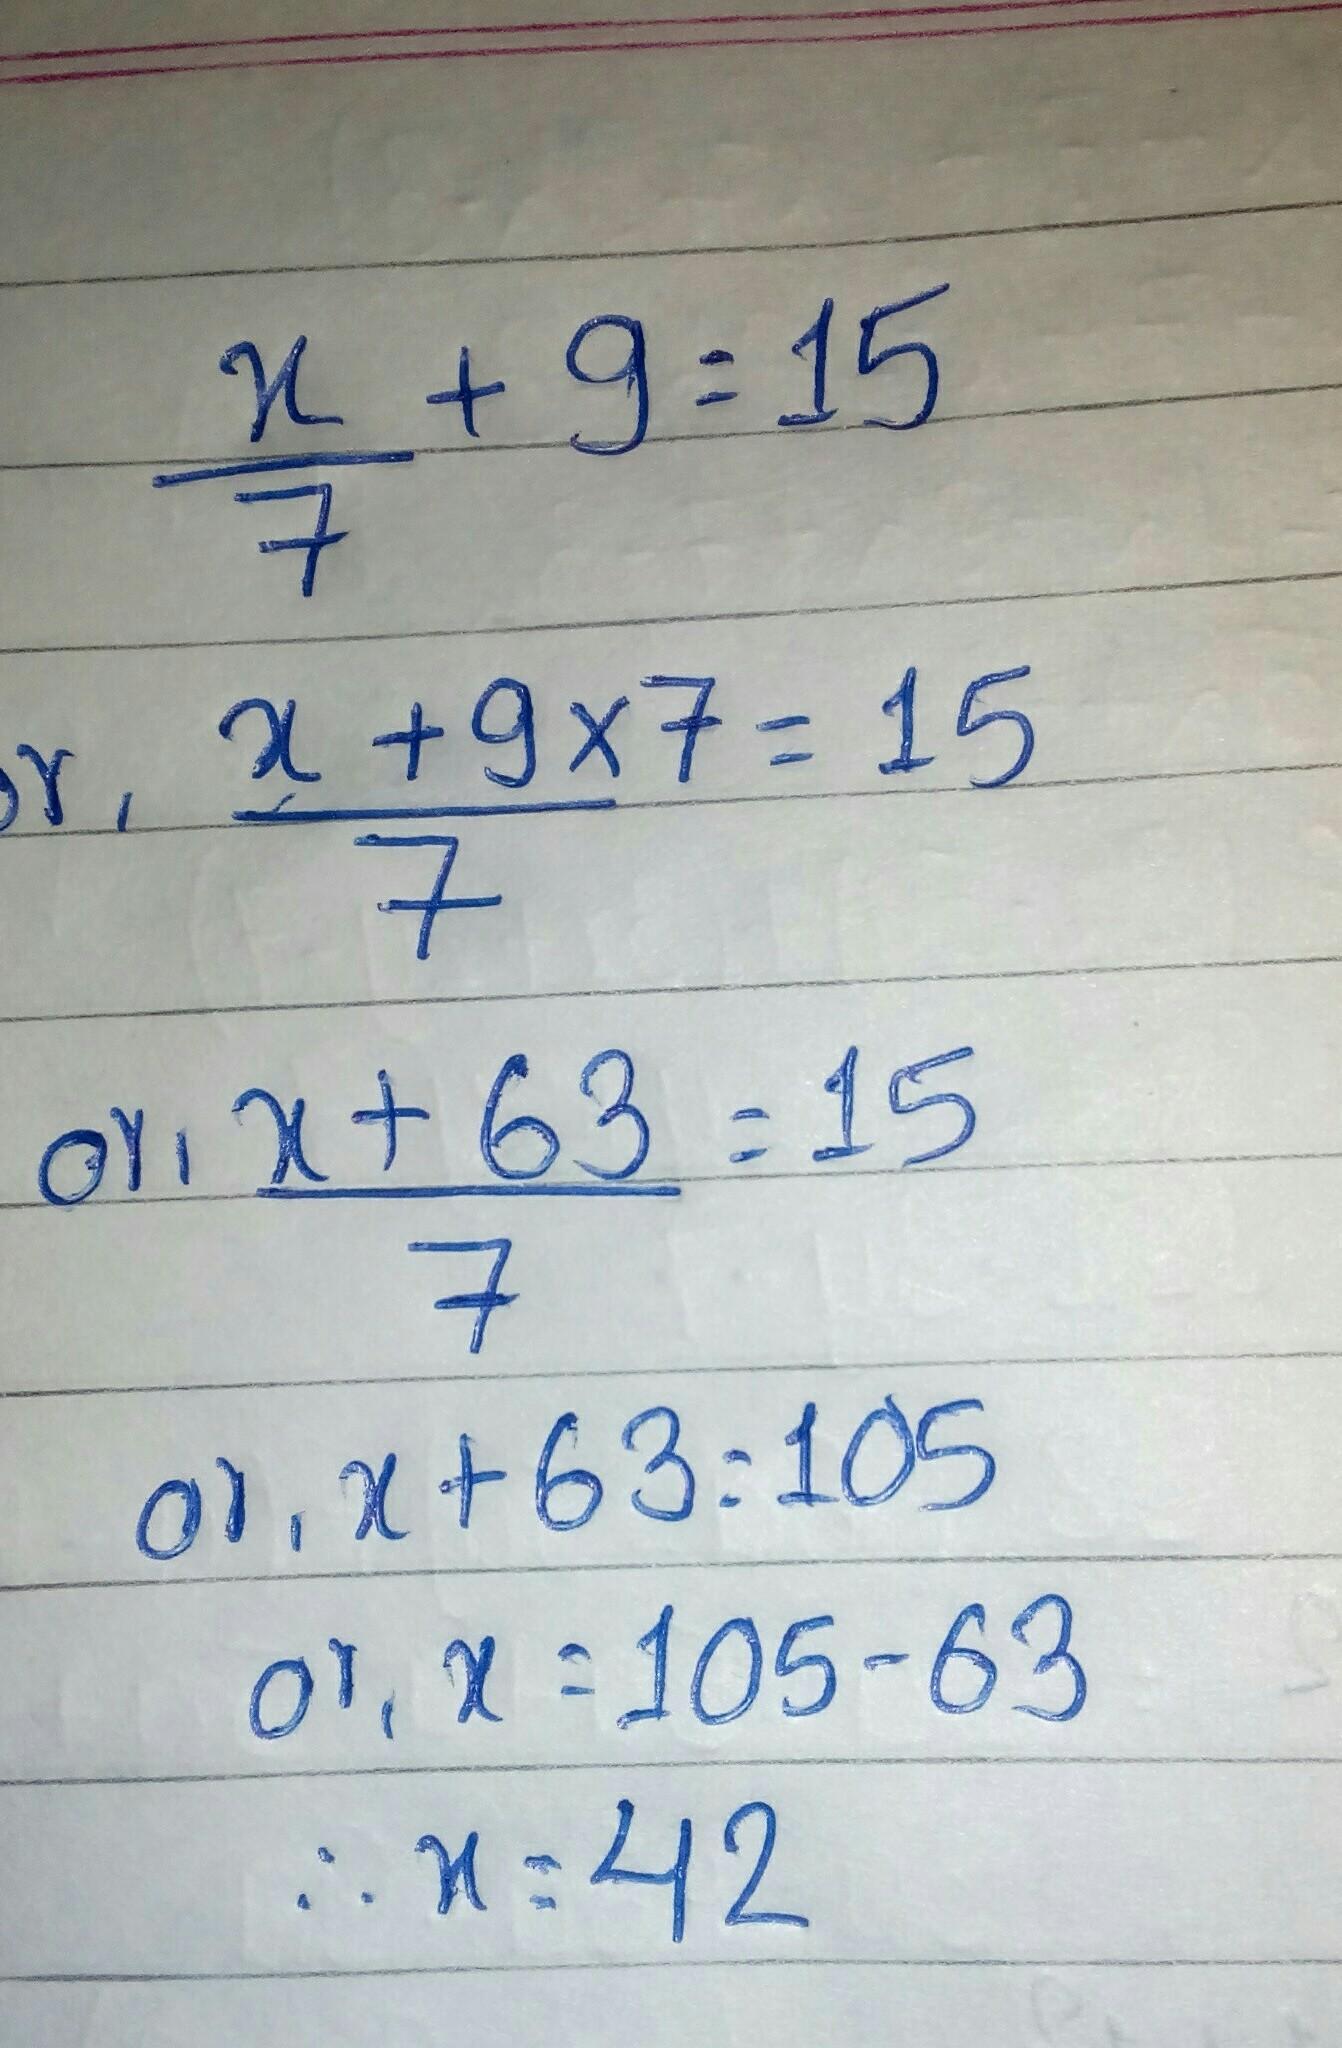 x/7 + 9 = 15
or, (x + 9 × 7)/7 = 15
or, (x + 63)/7 = 15
or, x + 63 = 105
or, x = 105 - 63
∴ x = 42